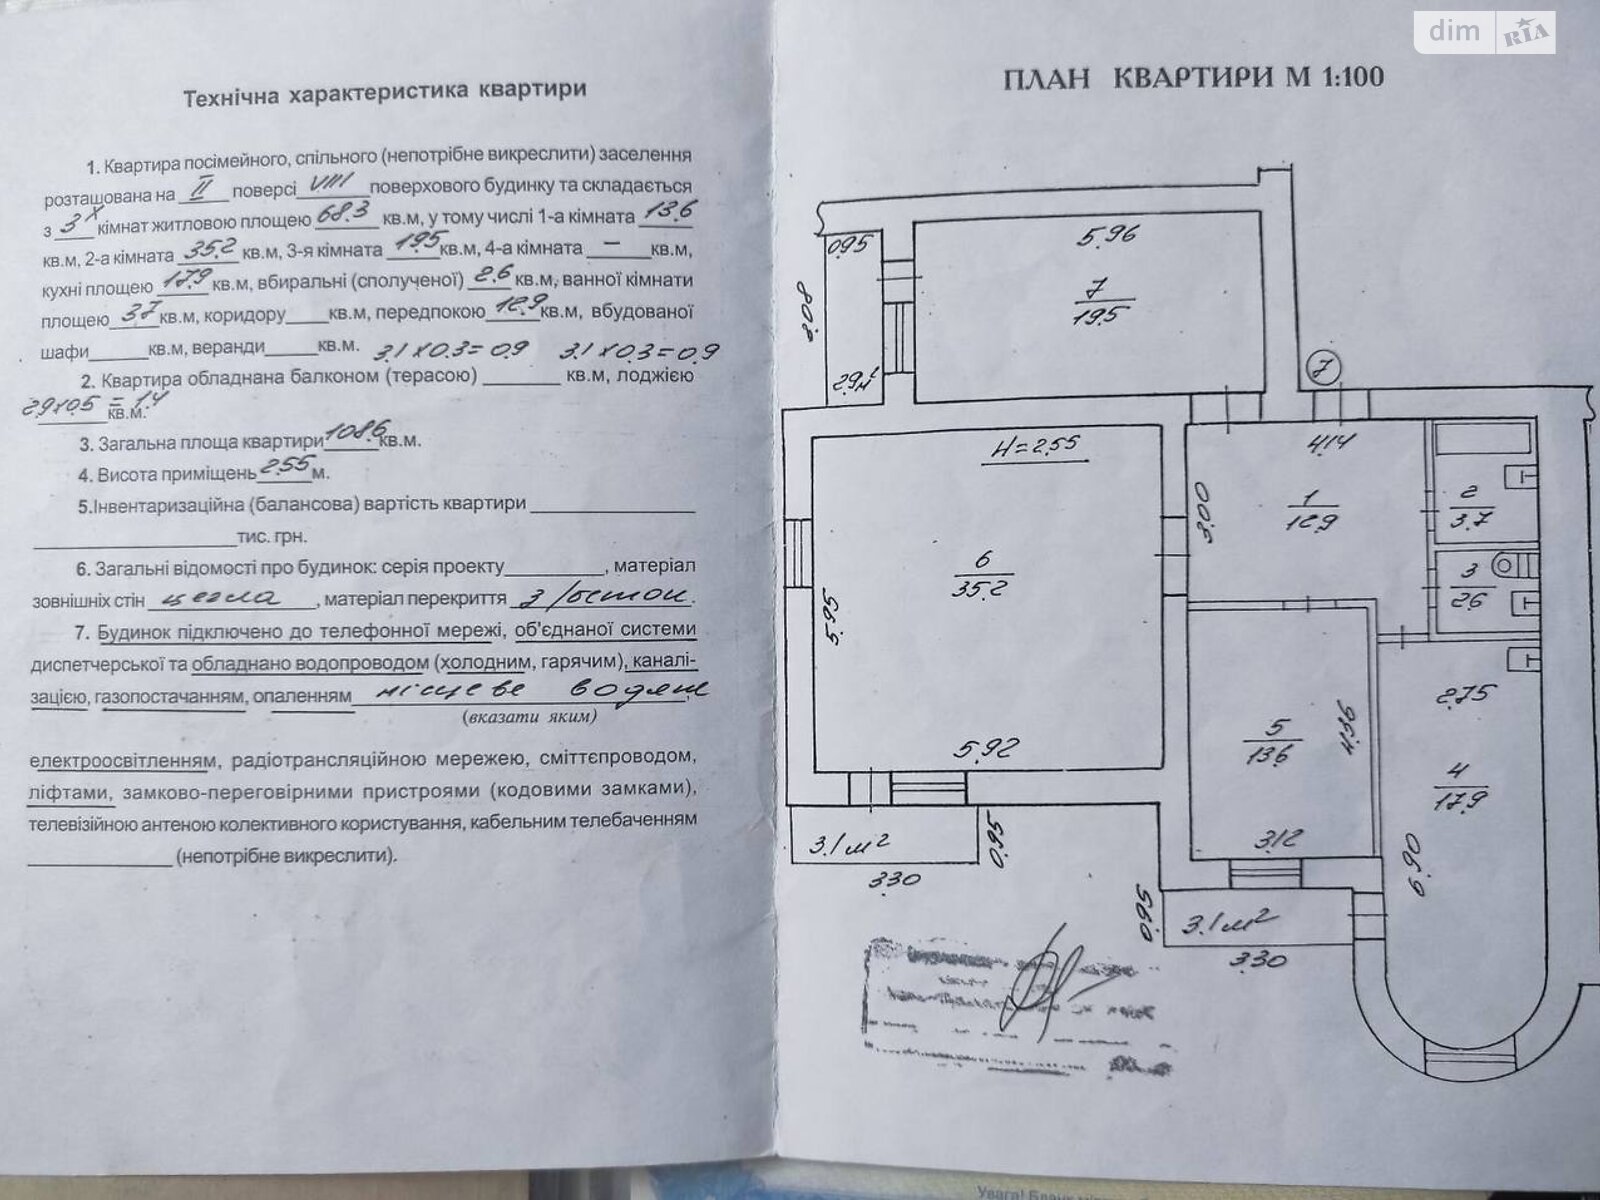 dim RIA
Технічна характеристика квартири
1. Квартира посімейного, спільного (непотрібне викреслити) заселення
розташована на II поверсі VIII поверхового будинку та складається
з 3х кімнат житловою площею 68.3 кв.м, у тому числі 1-а кімната 13.6
кв.м, 2-а кімната 35.2 кв.м, 3-я кімната 19.5 кв.м, 4-а кімната — кв.м,
кухні площею 17.9 кв.м, вбиральні (сполученої) 2.6 кв.м, ванної кімнати
площею 3.7 кв.м, коридору____ кв.м, передпокою 12.9 кв.м, вбудованої
шафи______кв.м, веранди_____кв.м. 3.1 х 0.3 = 0.9 3.1 х 0.3 = 0.9
2. Квартира обладнана балконом (терасою) ________ кв.м, лоджією
2.9х0.5 = 1.4 кв.м.
3. Загальна площа квартири 108.6 кв.м.
4. Висота приміщень 2.55 м.
5.Інвентаризаційна (балансова) вартість квартири ________________
____________________тис. грн.
6. Загальні відомості про будинок: серія проекту__________, матеріал
зовнішніх стін цегла, матеріал перекриття з/бетон.
7. Будинок підключено до телефонної мережі, об'єднаної системи
диспетчерської та обладнано водопроводом (холодним, гарячим), каналі-
зацією, газопостачанням, опаленням місцеве водяне
(вказати яким)
електроосвітленням, радіотрансляційною мережею, сміттєпроводом,
ліфтами, замково-переговірними пристроями (кодовими замками),
телевізійною антеною колективного користування, кабельним телебаченням
______________ (непотрібне викреслити).
ПЛАН КВАРТИРИ М 1:100
0.95
5.96
3.08
7
19.5
2.9 м²
7
H=2.55
4.14
1
12.9
3.00
2
3.7
6
35.2
3
2.6
5.95
2.75
5
13.6
4.36
5.92
4
17.9
3.12
3.1 м²
0.95
6.90
3.30
0.95
3.1 м²
3.30